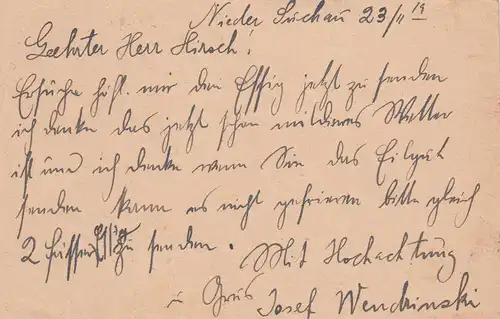 Nieder Suchau 23/11 19
Geehrter Herr Hirsch!
Ersuche höfl. mir den Essig jetzt zu senden
ich denke das jetzt schon milderes Wetter
ist und ich denke wenn Sie das Eilgut
senden kann es nicht gefrieren bitte gleich
2 Fässer Essig zu senden.
Mit Hochachtung
u Grus
Josef Wendrinski